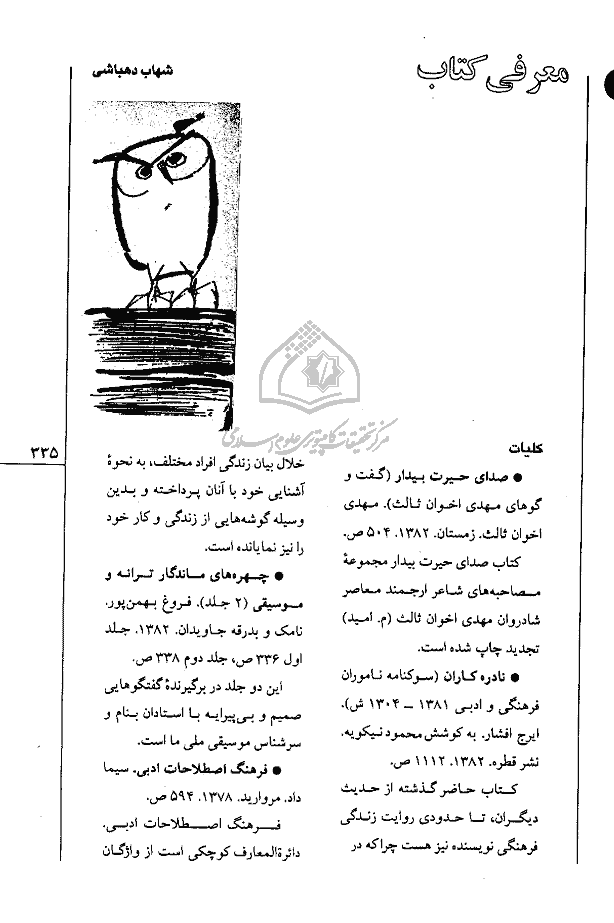 معرفی کتاب
شهاب دهباشی
مرکز تحقیقات کامپیوتری علوم اسلامی
۳۳۵
کلیات
● صدای حیرت بیدار (گفت و
گوهای مهدی اخوان ثالث). مهدی
اخوان ثالث. زمستان. ۱۳۸۲. ۵۰۴ ص.
کتاب صدای حیرت بیدار مجموعهٔ
مصاحبه‌های شاعر ارجمند معاصر
شادروان مهدی اخوان ثالث (م. امید)
تجدید چاپ شده است.
● نادره کاران (سوکنامه ناموران
فرهنگی و ادبی ۱۳۸۱ – ۱۳۰۴ ش).
ایرج افشار. به کوشش محمود نیکویه.
نشر قطره. ۱۳۸۲. ۱۱۱۲ ص.
کتاب حاضر گذشته از حدیث
دیگران، تا حدودی روایت زندگی
فرهنگی نویسنده نیز هست چراکه در
خلال بیان زندگی افراد مختلف، به نحوهٔ
آشنایی خود با آنان پرداخته و بدین
وسیله گوشه‌هایی از زندگی و کار خود
را نیز نمایانده است.
● چهره‌های ماندگار ترانه و
موسیقی (۲ جلد). فروغ بهمن‌پور.
نامک و بدرقه جاویدان. ۱۳۸۲. جلد
اول ۳۳۶ ص، جلد دوم ۳۳۸ ص.
این دو جلد در برگیرندهٔ گفتگوهایی
صمیم و بی‌پیرایه با استادان بنام و
سرشناس موسیقی ملی ما است.
● فرهنگ اصطلاحات ادبی. سیما
داد. مروارید. ۱۳۷۸. ۵۹۴ ص.
فرهنگ اصطلاحات ادبی.
دائرةالمعارف کوچکی است از واژگان